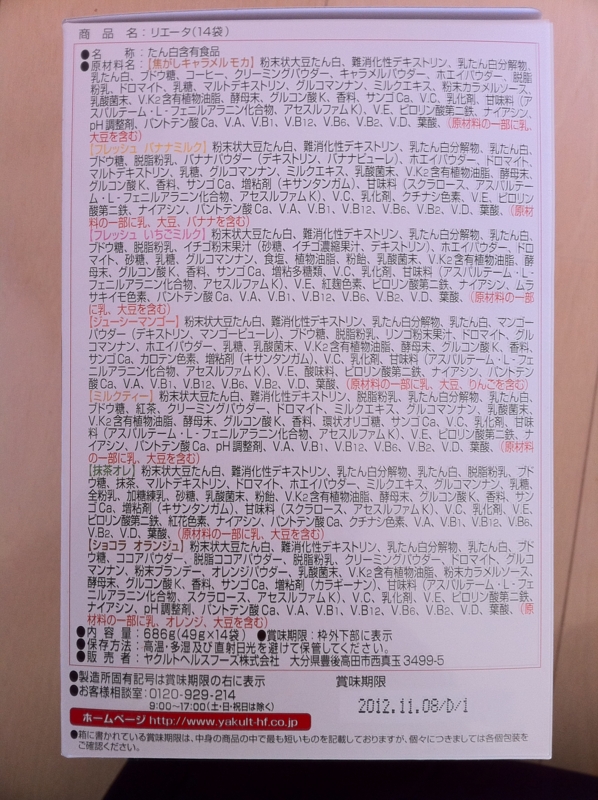 商品名：リエータ(14袋)
●名　　称：たん白含有食品
●原材料名：【焦がしキャラメルモカ】粉末状大豆たん白、難消化性デキストリン、乳たん白分解物、
乳たん白、ブドウ糖、コーヒー、クリーミングパウダー、キャラメルパウダー、ホエイパウダー、脱脂
粉乳、ドロマイト、乳糖、マルトデキストリン、グルコマンナン、ミルクエキス、粉末カラメルソース、
乳酸菌末、V.K2含有植物油脂、酵母末、グルコン酸K、香料、サンゴCa、V.C、乳化剤、甘味料（ア
スパルテーム・L-フェニルアラニン化合物、アセスルファムK）、V.E、ピロリン酸第二鉄、ナイアシン、
pH調整剤、パントテン酸Ca、V.A、V.B1、V.B12、V.B6、V.B2、V.D、葉酸、（原材料の一部に乳、
大豆を含む）
【フレッシュ バナナミルク】粉末状大豆たん白、難消化性デキストリン、乳たん白分解物、乳たん白、
ブドウ糖、脱脂粉乳、バナナパウダー（デキストリン、バナナピューレ）、ホエイパウダー、ドロマイト、
マルトデキストリン、乳糖、グルコマンナン、ミルクエキス、乳酸菌末、V.K2含有植物油脂、酵母末、
グルコン酸K、香料、サンゴCa、増粘剤（キサンタンガム）、甘味料（スクラロース、アスパルテー
ム・L-フェニルアラニン化合物、アセスルファムK）、V.C、乳化剤、クチナシ色素、V.E、ピロリン
酸第二鉄、ナイアシン、パントテン酸Ca、V.A、V.B1、V.B12、V.B6、V.B2、V.D、葉酸、（原材
料の一部に乳、大豆、バナナを含む）
【フレッシュ いちごミルク】粉末状大豆たん白、難消化性デキストリン、乳たん白分解物、乳たん白、
ブドウ糖、脱脂粉乳、イチゴ粉末果汁（砂糖、イチゴ濃縮果汁、デキストリン）、ホエイパウダー、ドロ
マイト、砂糖、乳糖、グルコマンナン、食塩、植物油脂、粉飴、乳酸菌末、V.K2含有植物油脂、酵
母末、グルコン酸K、香料、サンゴCa、増粘多糖類、V.C、乳化剤、甘味料（アスパルテーム・L-
フェニルアラニン化合物、アセスルファムK）、V.E、紅麹色素、ピロリン酸第二鉄、ナイアシン、ムラ
サキイモ色素、パントテン酸Ca、V.A、V.B1、V.B12、V.B6、V.B2、V.D、葉酸、（原材料の一部
に乳、大豆を含む）
【ジューシーマンゴー】粉末状大豆たん白、難消化性デキストリン、乳たん白分解物、乳たん白、マンゴー
パウダー（デキストリン、マンゴーピューレ）、ブドウ糖、脱脂粉乳、リンゴ粉末果汁、ドロマイト、グル
コマンナン、ホエイパウダー、乳糖、乳酸菌末、V.K2含有植物油脂、酵母末、グルコン酸K、香料、
サンゴCa、カロテン色素、増粘剤（キサンタンガム）、V.C、乳化剤、甘味料（アスパルテーム・L-フェ
ニルアラニン化合物、アセスルファムK）、V.E、酸味料、ピロリン酸第二鉄、ナイアシン、パントテン
酸Ca、V.A、V.B1、V.B12、V.B6、V.B2、V.D、葉酸、（原材料の一部に乳、大豆、りんごを含む）
【ミルクティー】粉末状大豆たん白、難消化性デキストリン、脱脂粉乳、乳たん白分解物、乳たん白、
ブドウ糖、紅茶、クリーミングパウダー、ドロマイト、ミルクエキス、グルコマンナン、乳酸菌末、
V.K2含有植物油脂、酵母末、グルコン酸K、香料、環状オリゴ糖、サンゴCa、V.C、乳化剤、甘味
料（アスパルテーム・L-フェニルアラニン化合物、アセスルファムK）、V.E、ピロリン酸第二鉄、ナ
イアシン、パントテン酸Ca、pH調整剤、V.A、V.B1、V.B12、V.B6、V.B2、V.D、葉酸、（原材料
の一部に乳、大豆を含む）
【抹茶オレ】粉末状大豆たん白、難消化性デキストリン、乳たん白分解物、乳たん白、脱脂粉乳、ブド
ウ糖、抹茶、マルトデキストリン、ドロマイト、ホエイパウダー、ミルクエキス、グルコマンナン、乳糖、
全粉乳、加糖練乳、砂糖、乳酸菌末、粉飴、V.K2含有植物油脂、酵母末、グルコン酸K、香料、サン
ゴCa、増粘剤（キサンタンガム）、甘味料（スクラロース、アセスルファムK）、V.C、乳化剤、V.E、
ピロリン酸第二鉄、紅花色素、ナイアシン、パントテン酸Ca、クチナシ色素、V.A、V.B1、V.B12、V.B6、
V.B2、V.D、葉酸、（原材料の一部に乳、大豆を含む）
【ショコラ オランジュ】粉末状大豆たん白、難消化性デキストリン、乳たん白分解物、乳たん白、ブド
ウ糖、ココアパウダー、脱脂ココアパウダー、脱脂粉乳、クリーミングパウダー、ドロマイト、グルコ
マンナン、粉末ブランデー、オレンジパウダー、乳酸菌末、V.K2含有植物油脂、粉末カラメルソース、
酵母末、グルコン酸K、香料、サンゴCa、増粘剤（カラギーナン）、甘味料（アスパルテーム・L-フェ
ニルアラニン化合物、スクラロース、アセスルファムK）、V.C、乳化剤、V.E、ピロリン酸第二鉄、
ナイアシン、pH調整剤、パントテン酸Ca、V.A、V.B1、V.B12、V.B6、V.B2、V.D、葉酸、（原
材料の一部に乳、オレンジ、大豆を含む）
●内容量：686g(49g×14袋)　●賞味期限：枠外下部に表示
●保存方法：高温・多湿及び直射日光を避けて保管してください。
●販売者：ヤクルトヘルスフーズ株式会社　大分県豊後高田市西真玉3499-5
●製造所固有記号は賞味期限の右に表示　賞味期限
●お客様相談室：0120-929-214
9:00～17:00(土・日・祝日は除く)
2012.11.08/D/1
ホームページ http://www.yakult-hf.co.jp
●箱に書かれている賞味期限は、中身の商品の中で最も短いものを記載しておりますが、個々につきましては各個包装を
ご確認ください。